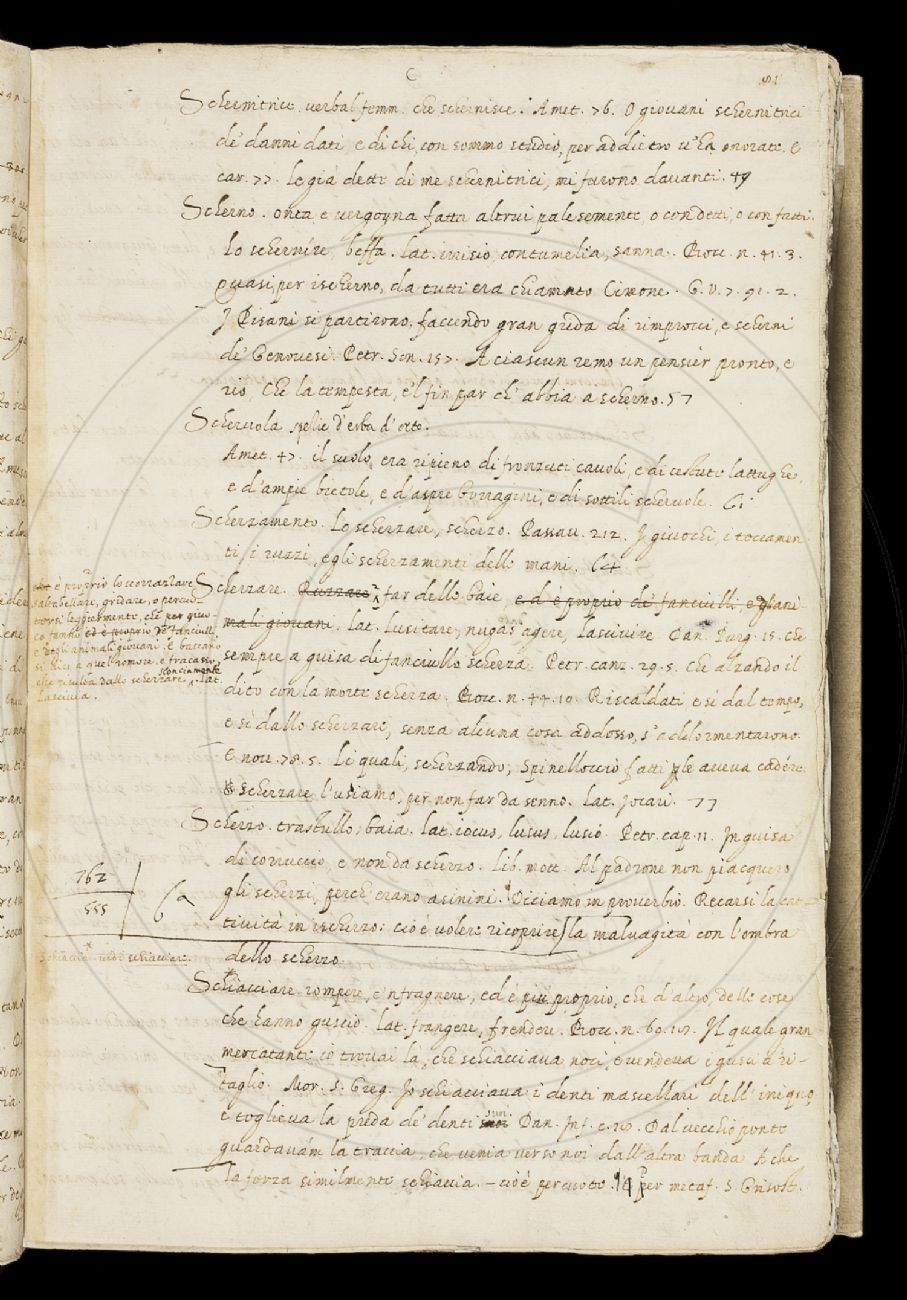 C
91
Schernitrice verbal femm. che schernisce. Amet. 76. O giovani schernitrici
de' danni dati e di chi, con sommo studio, per addietro v'ha onorate. E
car. 77. le già dette di me schernitrici, mi furono davanti. 49
Scherno. onta e vergogna fatta altrui palesemente, o con detti, o con fatti.
Lo schernire, beffa. lat. irrisio, contumelia, sanna. Bocc. n. 41. 3.
quasi, per ischerno, da tutti era chiamato Cimone. G. V. 7. 91. 2.
I Pisani si partirono, faccendo gran grida di rimprocci, e scherni
de' Genovesi. Petr. Son. 157. A ciascun remo un pensier pronto, e
rio, Che la tempesta, e'l fin par ch' abbia a scherno. 57
Scheruola spezie d'erba d'orto.
Amet. 47. il suolo era ripieno di fronzuti cavoli, e di cestute lattughe,
e d'ampie bietole, e d'aspre borragini, e di sottili scheruole. 61
Scherzamento. Lo scherzare, scherzo. Passav. 212. I giuochi, i toccamen
ti, i ruzzi, e gli scherzamenti delle mani. 64
è proprio lo scorrazzare
saltabellare, gridare, o percuo-
tersi leggiermente, che per giuo-
co fanno ed è proprio de' fanciulli,
e degli animali giovani. E baccano
si dice a quel romore, e fracasso,
che risulta dallo scherzare sconciamente. lat.
lascivia.
Scherzare. Ruzzare far delle baie, ed è proprio de' fanciulli, e degli ani-
mali giovani. lat. lusitare, nugas agere, lascivire Dan. Purg. 15. che
sempre a guisa di fanciullo scherza. Petr. canz. 29. 5. Che alzando il
dito con la morte scherza. Bocc. n. 44. 10. Riscaldati e sì dal tempo,
e sì dallo scherzare, senza alcuna cosa addosso, s'addormentarono.
E nov. 78. 5. Li quali, scherzando, Spinelloccio fatti gle aveva cadére
Scherzare l'usiamo, per non far da senno. lat. Jocari. 77
Scherzo. trastullo, baia. lat. iocus, lusus, lusio. Petr. cap. 11. In guisa
di corruccio, e non da scherzo. Lib. mott. Al padrone non piacquero
762
555
6a
gli scherzi, perch' erano asinini. Diciamo in proverbio. Recarsi la cat-
tività in ischerzo: cio è volere ricoprire la malvagità con l'ombra
dello scherzo.
Schiaccia. vedi schiacciare.
Schiacciare rompere, e 'nfragnere, ed è più proprio, che d'altro, delle cose
che hanno guscio. lat. frangere, frendere. Bocc. n. 60. 19. Il quale gran
mercatante io trovai là, che schiacciava noci, e vendeva i gusci a ri-
taglio. Mor. S. Greg. Io schiacciava i denti mascellari dell' iniquo,
e toglieva la preda de' denti suoi Dan. Inf. c. 18. Dal vecchio ponte
guardavám la traccia, che venia verso noi dall'altra banda E che
la ferza similmente schiaccia. – cioè percuote. 14 per metaf. S. Grisost.